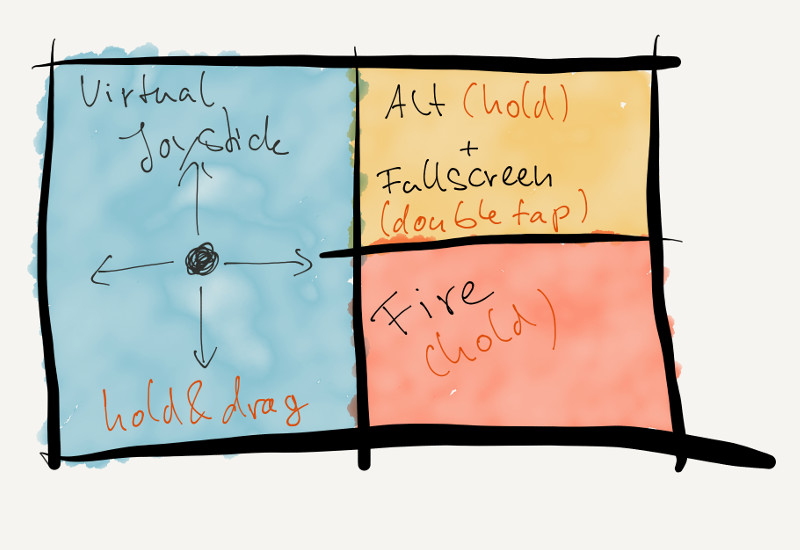 Virtual
Joystick
hold & drag
Alt (hold)
+
Fullscreen
(double tap)
Fire
(hold)